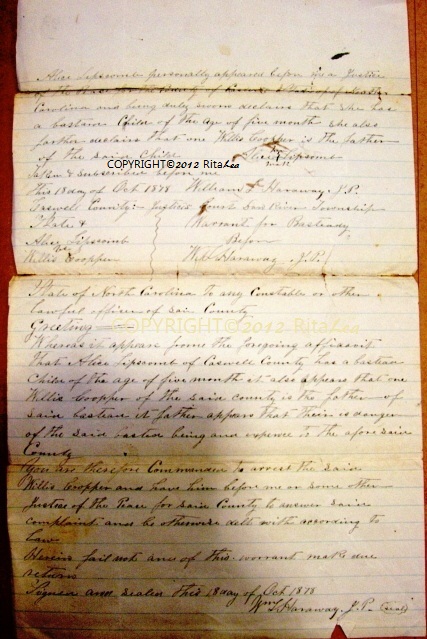 Alice Lipscomb personally appeared before me a Justice
of the Peace for the County of Caswell & State of North
Carolina and being duly sworn declares that she has
a bastard Child of the age of five month she also
farther declars that one Willis Cropper is the father
of the said Child Alice Lipscomb
COPYRIGHT©2012 RitaLea
& Subscribed before me
This 18 day of Oct 1878 William Haraway J.P.
Caswell County: Justices Court Dan River Township
State & Warrant for Bastardy
Alice Lipscomb Before
vs
Willis Cropper W.S. Haraway J.P.
State of North Carolina to any Constable or other
lawful officer of said County
Greeting
COPYRIGHT©2012 RitaLea
Whereas it appears from the foregoing affidavit
That Alice Lipscomb of Caswell County has a bastard
Child of the age of five month it also appears that one
Willis Cropper of the said county is the father of
said bastard it father appears that their is danger
of the said bastard being and expence to the afore said
County
You are therefore Commanded to arrest the said
Willis Cropper and have him before me or some other
Justice of the Peace for said County to answer said
complaint and be otherwise delt with according to
Law
Herein fail not and of this warrant make due
return
Signed and sealed this 18 day of Oct 1878
Wm S Haraway J.P. (seal)